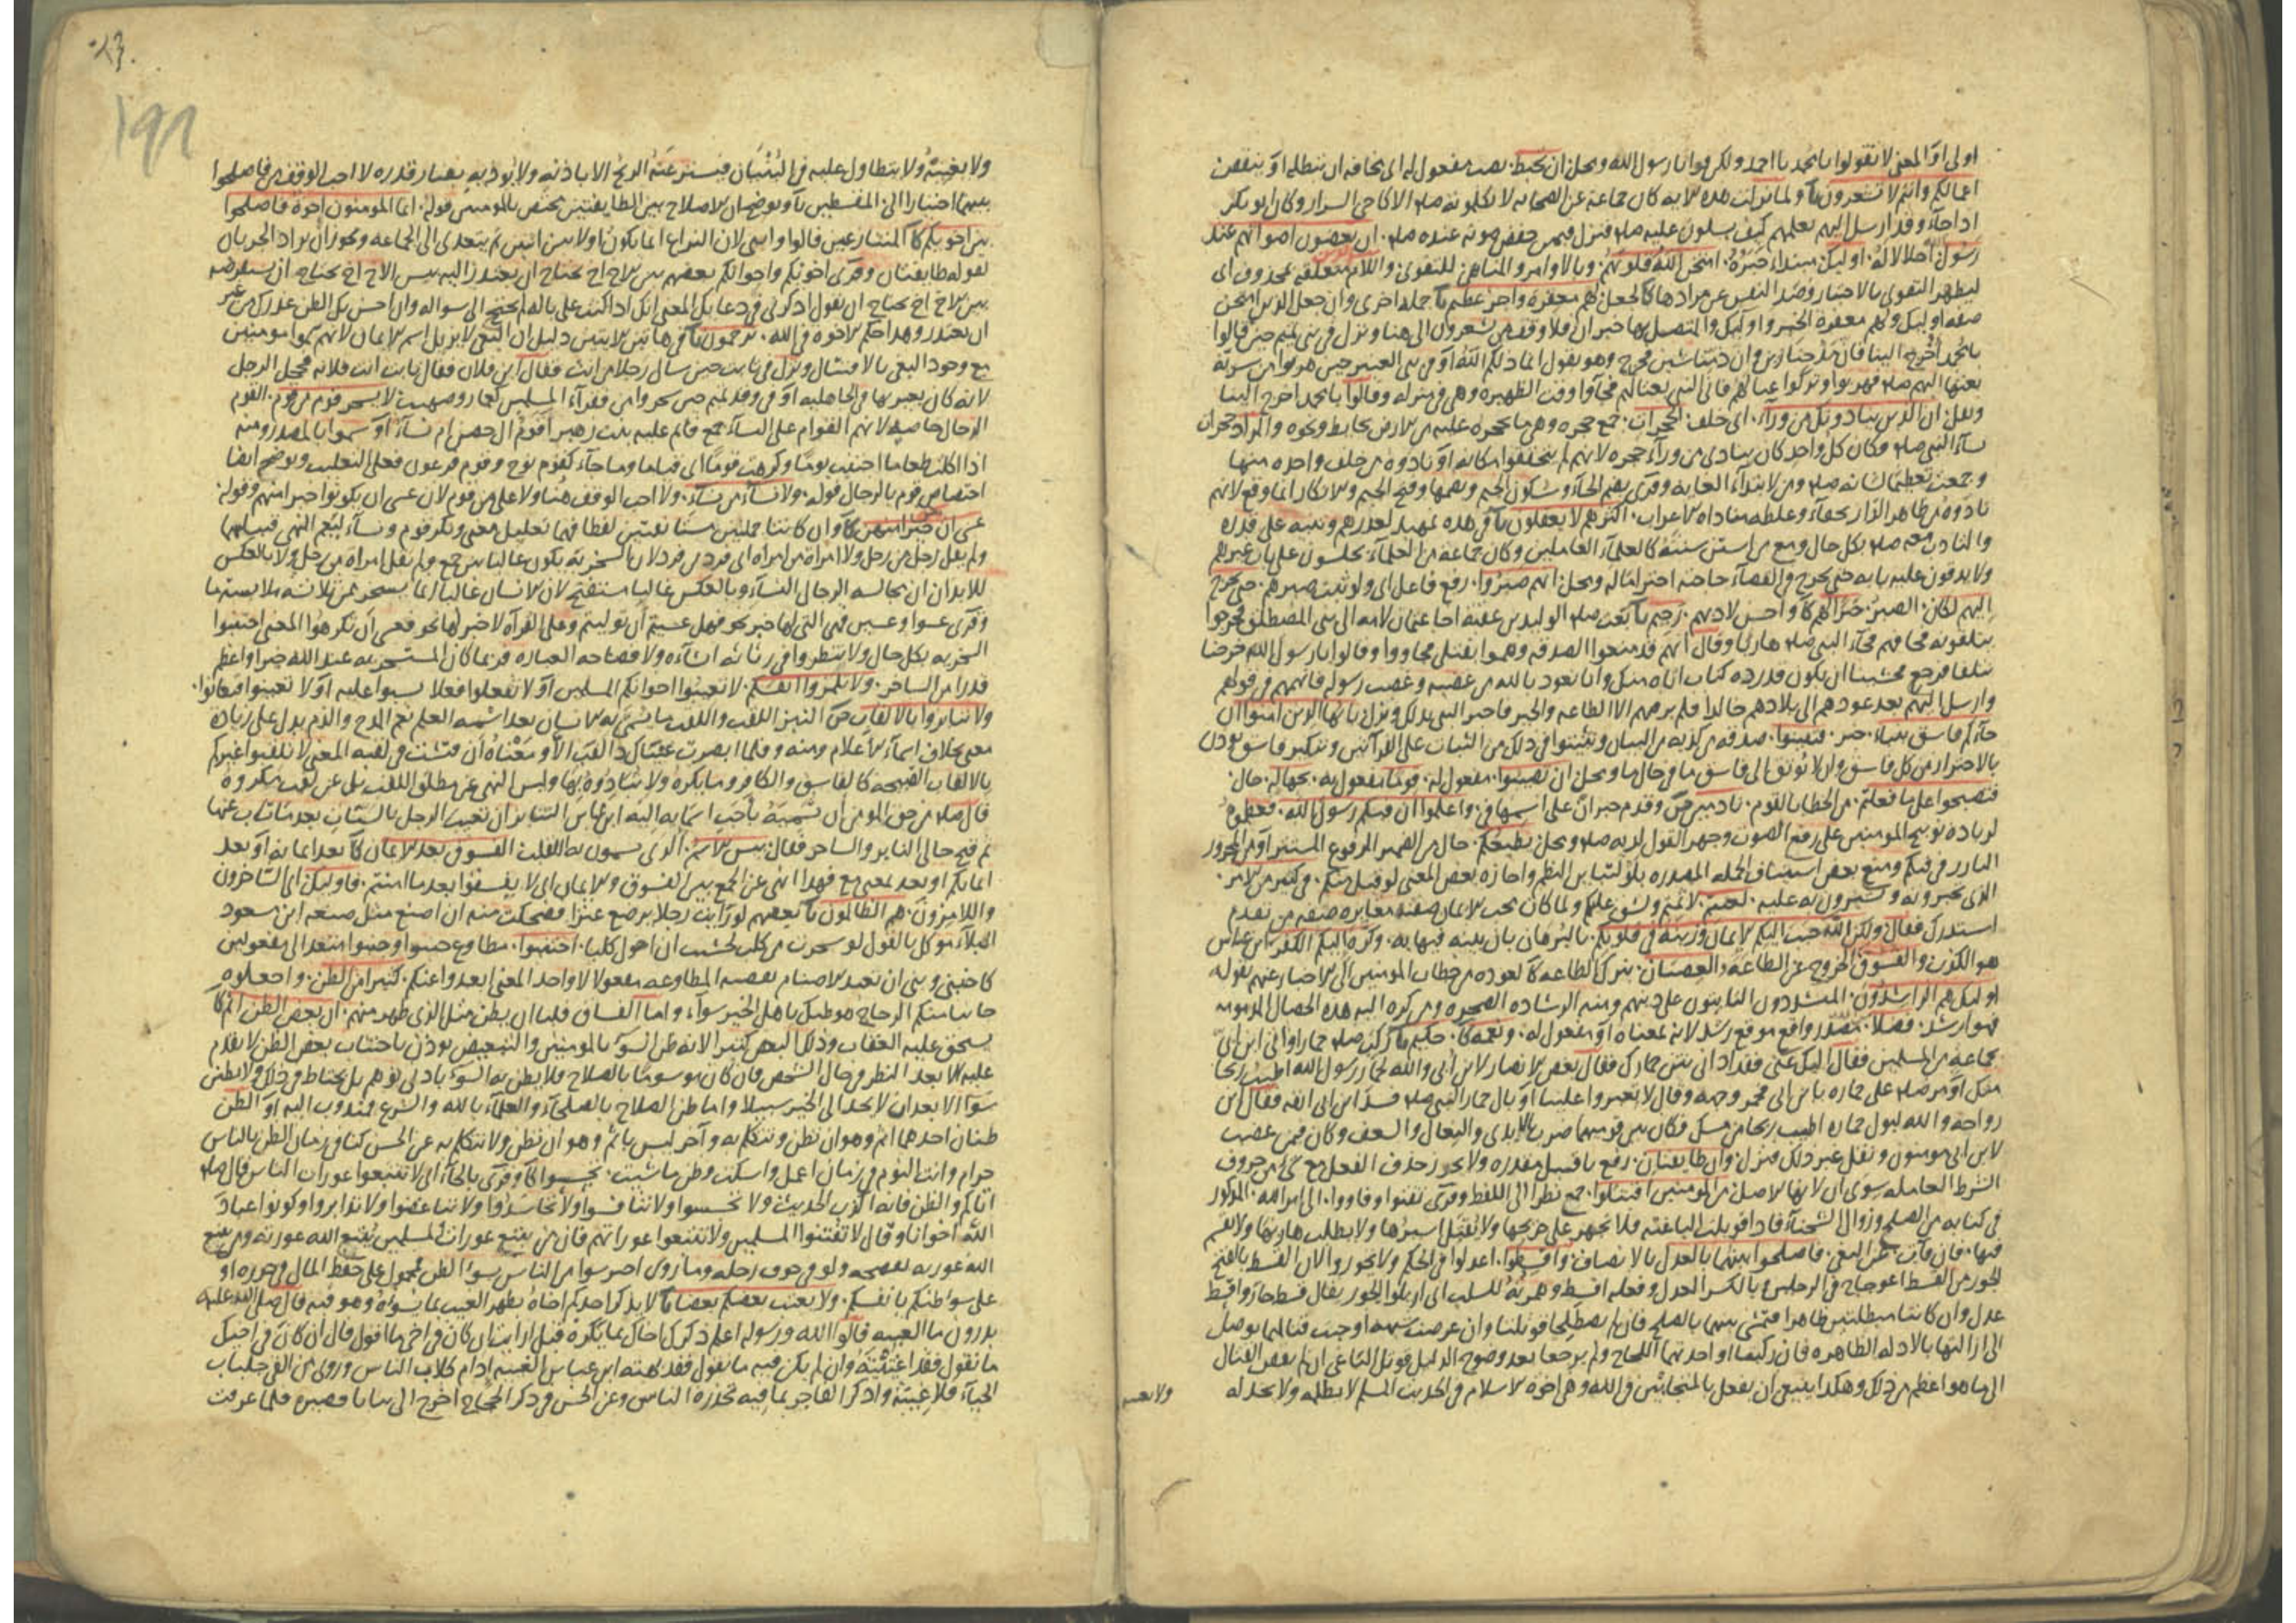 اولى او المعنى لا تقولوا يا محمد يا احمد ولكن قولوا يا رسول الله ومحل ان تحبط نصب مفعول له اى مخافة ان تبطله او ينقص
اعمالكم وانتم لا تشعرون ولما نزلت هذه الاية كان جماعة من الصحابة لا يكلمونه صلم الا كاخى السرار وكان ابو بكر
اذا جاء وفد ارسل اليهم يعلمهم كيف يسلون عليه صلم فنزل فيمن خفض صوته عنده صلم ان الذين يغضون اصواتهم عند
رسول الله اجلالا له اوليك مبتدا خبره امتحن الله قلوبهم وبالاوامر والمناهى للتقوى واللام متعلقة بمحذوف اى
ليظهر التقوى بالاختبار وصد النفس عن مرادها كا لجعل لهم مغفرة واجر عظيم جملة اخرى وان جعل الذين امتحن
صفة اوليك ولهم مغفرة الخبر واوليك والمتصل بها خبر ان فلا وقف من يشعرون الى هنا ونزل فى بنى تميم حين قالوا
يا محمد اخرج الينا فان مدحنا زين وان ذمنا شين فخرج وهو يقول انما ذلكم الله او فى بنى العنبر حين هربوا من سرية
بعثها اليهم صلم فهربوا وتركوا عيالهم فاتى النبى بعيالهم فجاوا وقت الظهيرة وهى فى منزله وقالوا يا محمد اخرج الينا
ونزل ان الذين ينادونك من ورآء اى خلف الحجرات جمع حجره وهى ما يحجره عليه من الارض بحايط ونحوه والمراد حجرات
نسآء النبى صلم فكان كل واحد كان ينادى من ورآء حجره لانهم لم يتحققوا مكانه او نادوه من خلف واحده منها
وجمعت تعظيما لشانه صلم ومن لابتدآء الغاية وقرى بضم الحآء وسكون الجيم وبضمها وفتح الجيم والانكار انما وقع لانهم
نادوه من ظاهر الدار بجفآء وغلظه مناداة الاعراب اكثرهم لا يعقلون فى هذه تمهيد لعذرهم وتنبيه على قدره
والتادب معه صلم بكل حال ومع من استن سنته كالعلمآء العاملين وكان جماعة من العلمآء يجلسون على باب غيرهم
ولا يدقون عليه بابه حتى يخرج والقضآء حاجته احتراما له ومحل انهم صبروا رفع فاعل اى ولو ثبت صبرهم حتى تخرج
اليهم لكان الصبر خيرا لهم كا واحسن لادبهم رحيم بعث صلم الوليد بن عقبة اخا عثمان لامه الى بنى المصطلق فخرجوا
يتلقونه فخافهم فجآء النبى صلم هاربا وقال انهم قد منعوا الصدقه وهموا بقتلى فجاووا وقالوا يا رسول الله خرجنا
نتلقاه فرجع فخشينا ان يكون قد رده كتاب اتاه منك وانا نعود بالله من غضبه وغضب رسوله فاتهمهم فى قولهم
وارسل اليهم بعد عودهم الى بلادهم خالدا فلم ير منهم الا الطاعة والخير فاخبر النبى بذلك ونزل يا ايها الذين امنوا ان
جآءكم فاسق بنباء خبر فتبينوا صدقه من كذبه من البيان وتثبتوا فى ذلك من الثبات على القرآتين وتنكير فاسق يوذن
بالاحتراز من كل فاسق وان لا يوثق الى فاسق ما فى حال ما ومحل ان تصيبوا مفعول له قوما مفعول به بجهالة حال
فتصبحوا على ما فعلتم من الخطا بالقوم نادمين وقدم خبر ان على اسمها فى واعلموا ان فيكم رسول الله فعظموه
لزيادة توبيخ المومنين على رفع الصوت وجهر القول لديه صلم ومحل يطيعكم حال من الضمير المرفوع المستتر او من المجرور
البارز فى فيكم ومنع بعض استيناف الجملة المصدره بلو لتباين النظم واجازه بعض المعنى لو قبل منكم فى كثير من الامر
الذى تخبرونه وتشيرون به عليه لعنتم لاثمتم ولشق عليكم ولما كان محب الايمان صفته مغايرة صفة من تقدم
استدرك فقال ولكن الله حبب اليكم الايمان وزينه فى قلوبكم بالبرهان بان بينه فيها به وكره اليكم الكفر ابن عباس
هو الكذب والفسوق الخروج عن الطاعة والعصيان بترك الطاعة كالعوده من خطاب المومنين الى الاخبار عنهم بقوله
اوليك هم الراشدون المشددون الثابتون على دينهم ومنه الرشاده الصخره ومن كره اليه هذه الخصال المذمومة
فهو ارشد فضلا مصدر واقع موقع رشد لانه بمعناه او مفعول له ونعمة كا حكيم ركب صلم حمارا واتى ابن ابى
جماعة من المسلمين فقال اليك عنى فقد اذانى نتن حمارك فقال بعض الانصار لابن ابى والله لحمار رسول الله اطيب ريحا
منك او مر صلم على حماره بابن ابى فخمر وجهه وقال لا تغبروا علينا او بال حمار النبى صلم فسد ابن ابى انفه فقال ابن
رواحة والله لبول حماره اطيب ريحا من مسك فكان بين قوميهما ضرب بالايدى والنعال والسعف وكان فيمن غضب
لابن ابى مومنون وتقل غير ذلك فنزل وان طايفتان رفع باقتتل مقدره ولا يجوز حذف الفعل مع شئ من حروف
الشرط العامله سوى ان لانها الاصل من المومنين اقتتلوا جمع نظرا الى اللفظ وقرى تقتتلوا وفاووا الى امر الله المذكور
فى كتابه من الصلح وزوال الشحنآء فاذا قوبلت الباغية فلا تجهز على جريحها ولا يقتل اسيرها ولا يطلب هاربها ولا يقسم
فيها فان فآءت عن البغى فاصلحوا بينهما بالعدل بالانصاف واقسطوا اعدلوا فى الحكم ولا تجوروا لان القسط بالفتح
الجور من القسط اعوجاج فى الرجلين وبالكسر العدل وفعله اقسط وهمزته للسلب اى ازيلوا الجور يقال قسط جار واقسط
عدل وان كانتا مبطلتين ظاهرا فمشى بينهما بالصلح فان لم يصطلحا قوتلتا وان عرضت شبهة اوجبت قتالهما يوصل
الى ازالتها بالادلة الظاهره فان ركبتا او احدتهما اللجاج ولم يرجعا بعد وضوح الدليل قوتل الباغى ان لم يفض القتال
الى ما هو اعظم من ذلك وهكذا ينبغى ان يفعل بالمتحابين فى الله وهى اخوة الاسلام فى الحديث المسلم لا يظلمه ولا يخذله
ولا يعيبه
١٩١
ولا يعيبه ولا يتطاول عليه فى البنيان فيستر عنه الريح الا باذنه ولا يوذيه بقتار قدره لا احب الوقف من فاصلحوا
بينهما اختيارا الى المقسطين ويوضح ان الاصلاح بين الطايفتين يختص بالمومنين قوله انما المومنون اخوة فاصلحوا
بين اخويكم كا المتنازعين قالوا واثنى لان النزاع انما يكون اولا بين اثنين ثم يتعدى الى الجماعة ويجوز ان يراد الحزبان
لقوله طايفتان وقرى اخوتكم واخوانكم بعضهم بين الاخ اخ يحتاج ان يعتذر اليه بيس الاخ اخ يحتاج ان يستقرضه
بيس الاخ اخ يحتاج ان يقول اذكرنى فى دعايك المعنى انك اذا كنت على باله لم يحتج الى سواله وان احسن بك الظن عذرك من غير
ان يعتذر وهذا حكم الاخوة فى الله ترحمون فى هاتين الايتين دليل ان البغى لا يزيل اسم الايمان لانهم سموا مومنين
مع وجود البغى بالامتثال ونزل فى ثابت حين سال رجلا من انت فقال ابن فلان فقال ثابت انت فلانه فخجل الرجل
لانه كان يعير بها فى الجاهلية او فى وفد تميم حين سخروا من فقرآء المسلمين كعمار وصهيب لا يسخر قوم من قوم القوم
الرجال خاصه لانهم القوام على النسآء جمع قايم عليه بيت زهير اقوم آل حصن ام نسآء او سموا بالمصدر ومنه
اذا اكلت طعاما احببت نوما وكرهت قوما اى قياما وما جآء كقوم نوح وقوم فرعون فعلى التغليب ويوضح ايضا
اختصاص قوم بالرجال قوله ولا نسآء من نسآء ولا احب الوقف هنا ولا على من قوم لان عسى ان يكونوا خيرا منهم وقوله
عسى ان يكن خيرا منهن كا وان كانتا جملتين مستانفتين لفظا فهما تعليل معنى ونكر قوم ونسآء ليعم النهى قبيليهما
ولم يقل رجل من رجل ولا امراة من امراة اى فرد من فرد لان السخرية يكون غالبا من جمع ولم يقل امراة من رجل ولا بالعكس
للايذان ان مجالسة الرجال النسآء وبالعكس غالبا مستقبح لان الانسان غالبا انما يسخر ممن يلابسه ملابسة ما
وقرى عسوا وعسين فهى التى لها خبر نحو فهل عسيتم ان توليتم وعلى القرآة لا خبر لها نحو فعسى ان تكرهوا المعنى اجتنبوا
السخرية بكل حال ولا تنظروا فى رثاثة الشارة ولا فصاحة العبارة فربما كان المستسخر به عند الله خيرا واعظم
قدرا من الساخر ولا تلمزوا انفسكم لا تعيبوا اخوانكم المسلمين او لا تفعلوا فعلا تسبوا عليه او لا تعيبوا فتعابوا
ولا تنابزوا بالالقاب من النبز اللقب واللقب ما سمى به الانسان بعد اسمه العلم نعم المدح والذم يدل على زيادة
معنى بخلاف اسمآء الاعلام ومنه وقلما ابصرت عيناك ذا لقب الا ومعناه ان فتشت فى لقبه المعنى لا تلقبوا غيركم
بالالقاب القبيحه كالفاسق والكافر وما يكره ولا تنادوه بها وليس النهى عن مطلق اللقب بل عن لقب مكروه
قال صلم من حق المومن ان تسميه باحب اسمايه اليه ابن عباس التنابز ان تعيب الرجل بالسيئات بعد متاب عنها
ثم قبح حالى النابز والساخر فقال بيس الاسم الذى يسمون به اللقب الفسوق بعد الايمان كا بعد ايمانه او بعد
ايمانكم او بعد بمعنى مع فهذا نهى عن الجمع بين الفسوق والايمان اى لا يفسقوا بعد ما امنتم فاوليك اى الساخرون
واللامزون هم الظالمون بعضهم لو رايت رجلا يرضع عنزا فضحكت منه ان اصنع مثل صنعه ابن مسعود
البلآء موكل بالقول لو سخرت من كلب لخشيت ان احول كلبا اجتنبوا مطاوع جنبوا وجنبوا متعد الى مفعولين
كاجنبنى وبنى ان نعبد الاصنام نقصه المطاوعه مفعولا لا واحدا المعنى ابعدوا عنكم كثيرا من الظن واجعلوه
جانبا منكم الزجاج هو ظنك باهل الخير سوآء واما الفساق فلنا ان يظن مثل الذى ظهر منهم ان بعض الظن اثم كا
يستحق عليه العقاب وذلك البعض كثير الا نه ظن السوء بالمومنين والتبعيض يوذن باجتناب بعض الظن لا يقدم
عليه الا بعد النظر فى حال الشخص فان كان موسوما بالصلاح فلا يظن به السوء بادنى توهم بل يحتاط فى ذلك ولا يظنن
سوآ الا بعد ان لا يجد الى الخير سبيلا واما ظن الصلاح بالصلحآء والعلمآء بالله والشرع فمندوب اليه او الظن
ظنان احدهما اثم وهو ان تظن وتتكلم به وآخر ليس باثم وهو ان تظن ولا تتكلم به عن الحسن كنا فى زمان الظن بالناس
حرام وانت اليوم فى زمان اعمل واسكت وظن ما شيت تجسسوا كا وقرى بالحآء اى لا تتبعوا عورات الناس قال صلم
اياكم والظن فانه اكذب الحديث ولا تجسسوا ولا تنافسوا ولا تحاسدوا ولا تباغضوا ولا تدابروا وكونوا عباد
الله اخوانا وقال لا تغتابوا المسلمين ولا تتبعوا عوراتهم فان من يتتبع عورات المسلمين يتتبع الله عورته ومن يتتبع
الله عورته يفضحه ولو فى جوف رحله وما روى احترسوا من الناس بسوء الظن محمول على حفظ المال فى حرزه او
على سواطنكم بانفسكم ولا يغتب بعضكم بعضا كا لا يذكر احدكم اخاه بظهر الغيب بما يسوءه وهو فيه قال صلى الله عليه
يدرون ما الغيبه قالوا الله ورسوله اعلم ذكرك اخاك بما يكره قيل ارايت ان كان فى اخى ما اقول قال ان كان فى اخيك
ما تقول فقد اغتبته وان لم يكن فيه ما تقول فقد بهته ابن عباس الغيبة ادام كلاب الناس وروى من القى جلباب
الحيآء فلا غيبة له واذكر الفاجر بما فيه تحذره الناس وعن الحسن فى ذكر الحجاج اخرج الى بنانا قصيرة قلما عرقت